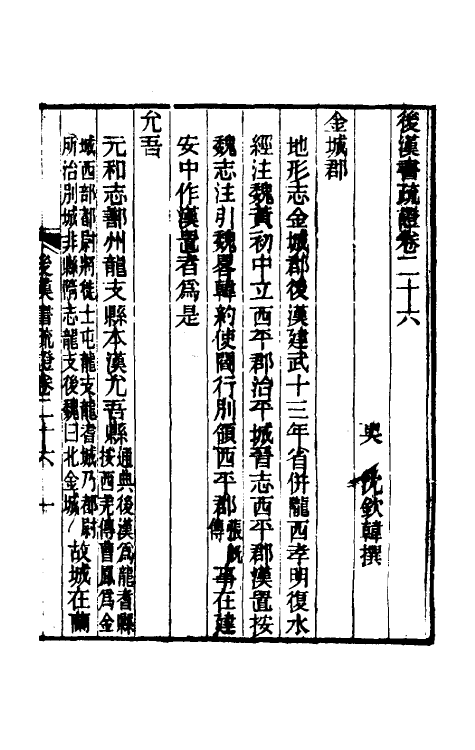 後漢書疏證卷二十六
吳 沈欽韓撰
金城郡
地形志金城郡後漢建武十三年省併隴西孝明復水
經注魏黃初中立西平郡治平城晉志西平郡漢置按
魏志注引魏畧韓約使閻行別領西平郡張既傳事在建
安中作漢置者爲是
允吾
元和志鄯州龍支縣本漢允吾縣通典後漢爲龍耆縣按西羌傳曹鳳爲金
城西部都尉將徙士屯龍支龍耆城乃都尉所治別城非縣隋志龍支後魏曰北金城故城在蘭
後漢書疏證卷二十六 一